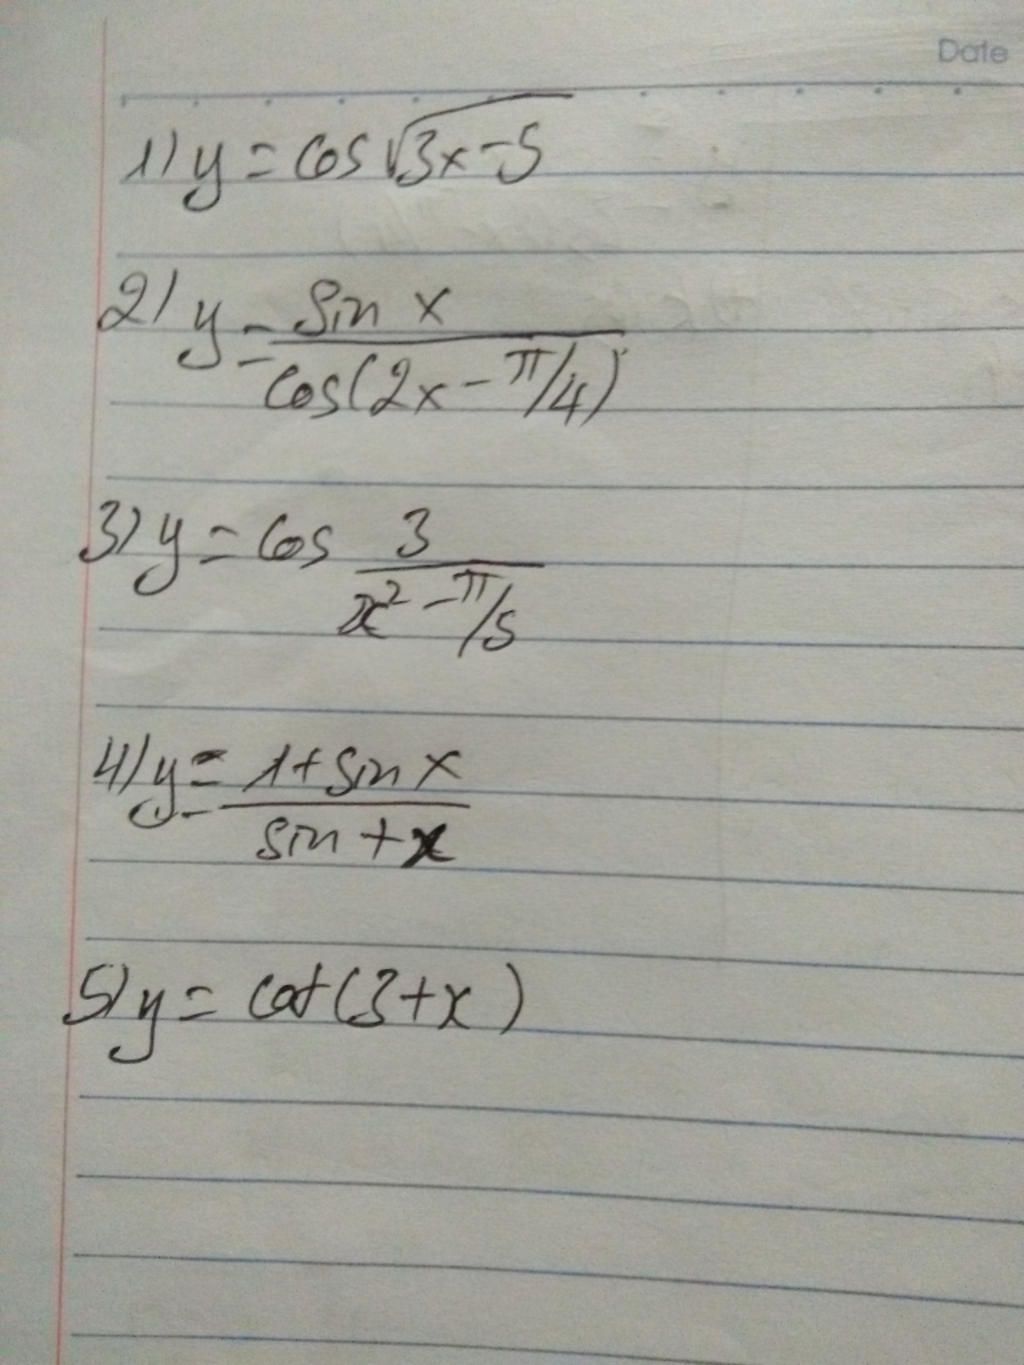 Date
1) y = cos √3x-5
2) y = sin x / cos(2x - π/4)
3) y = cos 3 / x² - π/5
4) y = 1 + sin x / sin + x
5) y = cot(3+x)